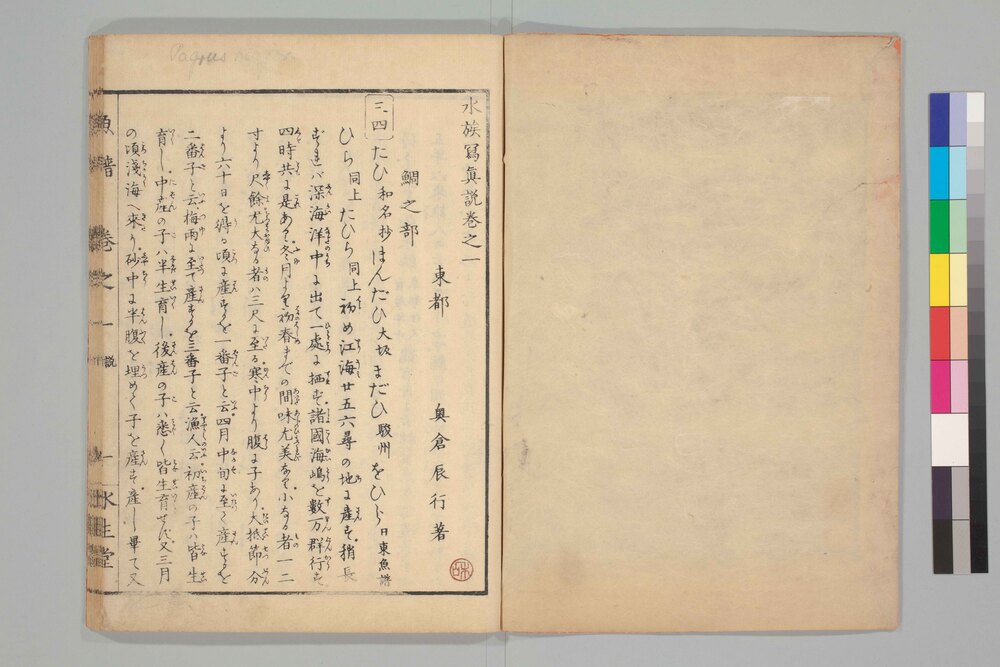 水族寫眞説巻之一
東都 奥倉辰行著
鯛之部
三、四 たひ 和名抄 ほんだひ 大坂 まだひ 駿州 をひら 日東魚譜
ひら 同上 たひら 同上 初め江海廿五六尋の地に産す稍長
ずれバ深海洋中に出て一處に栖む諸國海嶋を數万群行す
四時共に是あり冬月より初春までの間味尤美なり小なる者一二
寸より尺餘尤大なる者ハ三尺に至る寒中より腹に子あり大抵節分
より六十日を得る頃に産するを一番子と云四月中旬に至て産するを
二番子と云梅雨に至て産するを三番子と云漁人云初産の子ハ皆生
育し中産の子ハ半生育し後産の子ハ悉く皆生育せず又三月
の頃淺海へ来り砂中に半腹を埋めて子を産す産し畢て又
魚譜 巻之一 説 一 水生堂
Pagrus